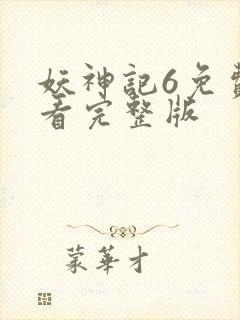 妖神記6免費
看完整版
蒙華才